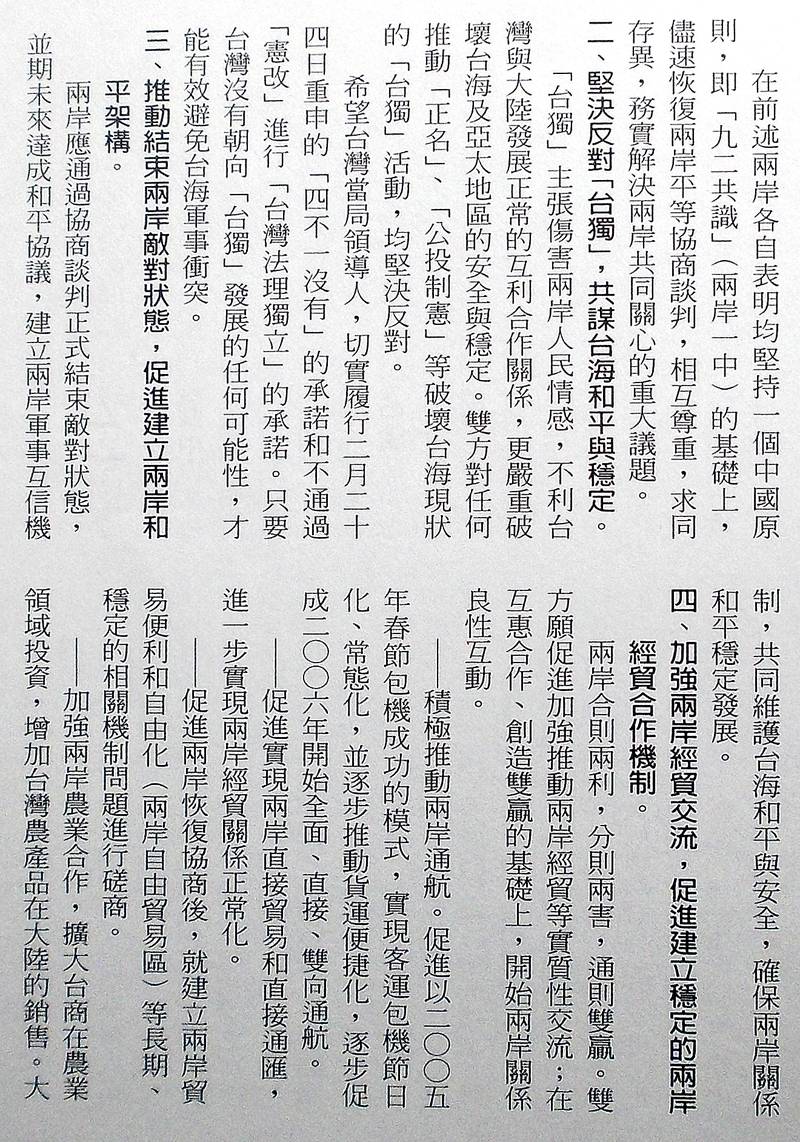 在前述兩岸各自表明均堅持一個中國原
則，即「九二共識」（兩岸一中）的基礎上，
儘速恢復兩岸平等協商談判，相互尊重，求同
存異，務實解決兩岸共同關心的重大議題。
二、堅決反對「台獨」，共謀台海和平與穩定。
「台獨」主張傷害兩岸人民情感，不利台
灣與大陸發展正常的互利合作關係，更嚴重破
壞台海及亞太地區的安全與穩定。雙方對任何
推動「正名」、「公投制憲」等破壞台海現狀
的「台獨」活動，均堅決反對。
希望台灣當局領導人，切實履行二月二十
四日重申的「四不一沒有」的承諾和不通過
「憲改」進行「台灣法理獨立」的承諾。只要
台灣沒有朝向「台獨」發展的任何可能性，才
能有效避免台海軍事衝突。
三、推動結束兩岸敵對狀態，促進建立兩岸和
平架構。
兩岸應通過協商談判正式結束敵對狀態，
並期未來達成和平協議，建立兩岸軍事互信機
制，共同維護台海和平與安全，確保兩岸關係
和平穩定發展。
四、加強兩岸經貿交流，促進建立穩定的兩岸
經貿合作機制。
兩岸合則兩利，分則兩害，通則雙贏。雙
方願促進加強推動兩岸經貿等實質性交流；在
互惠合作、創造雙贏的基礎上，開始兩岸關係
良性互動。
——積極推動兩岸通航。促進以二〇〇五
年春節包機成功的模式，實現客運包機節日
化、常態化，並逐步推動貨運便捷化，逐步促
成二〇〇六年開始全面、直接、雙向通航。
——促進實現兩岸直接貿易和直接通匯，
進一步實現兩岸經貿關係正常化。
——促進兩岸恢復協商後，就建立兩岸貿
易便利和自由化（兩岸自由貿易區）等長期、
穩定的相關機制問題進行磋商。
——加強兩岸農業合作，擴大台商在農業
領域投資，增加台灣農產品在大陸的銷售。大